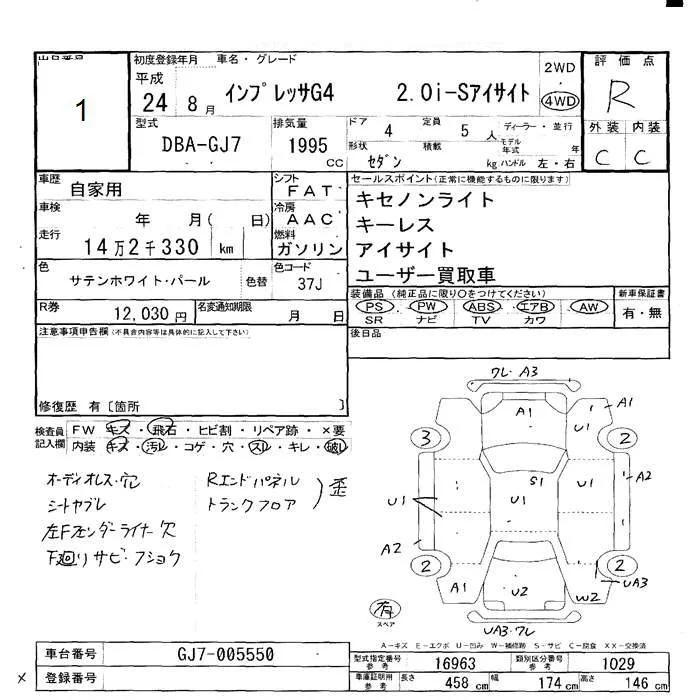 出品番号 初度登録年月 車名・グレード 2WD 評価点
1 平成 24 8月 インプレッサG4 2.0i-Sアイサイト 4WD R
型式 排気量 ドア 4 定員 5人 ディーラー・並行 外装 内装
DBA-GJ7 1995 CC 形状 セダン 積載 kg モデル年式 年 ハンドル 左・右 C C
車歴 自家用 シフト FAT セールスポイント(正常に機能するものに限ります)
車検 年 月( 日) 冷房 AAC キセノンライト
キーレス
走行 14万2千330 km 燃料 ガソリン アイサイト
ユーザー買取車
色 サテンホワイト・パール 色替 色コード 37J
装備品(純正品に限り○をつけてください) 新車保証書
PS・PW・ABS・エアB・AW 有・無
SR ナビ TV カワ
R券 12,030円 名変通知期限 月 日
後日品
注意事項申告欄(不具合内容等は具体的に記入して下さい)
修復歴 有〔箇所 〕
検査員記入欄 FW キズ・飛石・ヒビ割・リペア跡・×要
内装 キズ・汚レ・コゲ・穴・スレ・キレ・破レ
オーディオレス・穴
シートヤブレ
左Fフェンダーライナー欠
下廻りサビ・フショク
Rエンドパネル
トランクフロア
歪
ワレ・A3
A1 U1 A1
3 2
S1 U1 A2
U1 U1
A2
2 2
A1 U2 W2 UA3
有 スペア
UA3・ワレ
A-キズ E-エクボ U-凹み W-補修跡 S-サビ C-腐食 XX-交換済
車台番号 GJ7-005550 型式指定番号 参考 16963 類別区分番号 参考 1029
× 登録番号 車庫証明用 参考 長さ 458 cm 幅 174 cm 高さ 146 cm